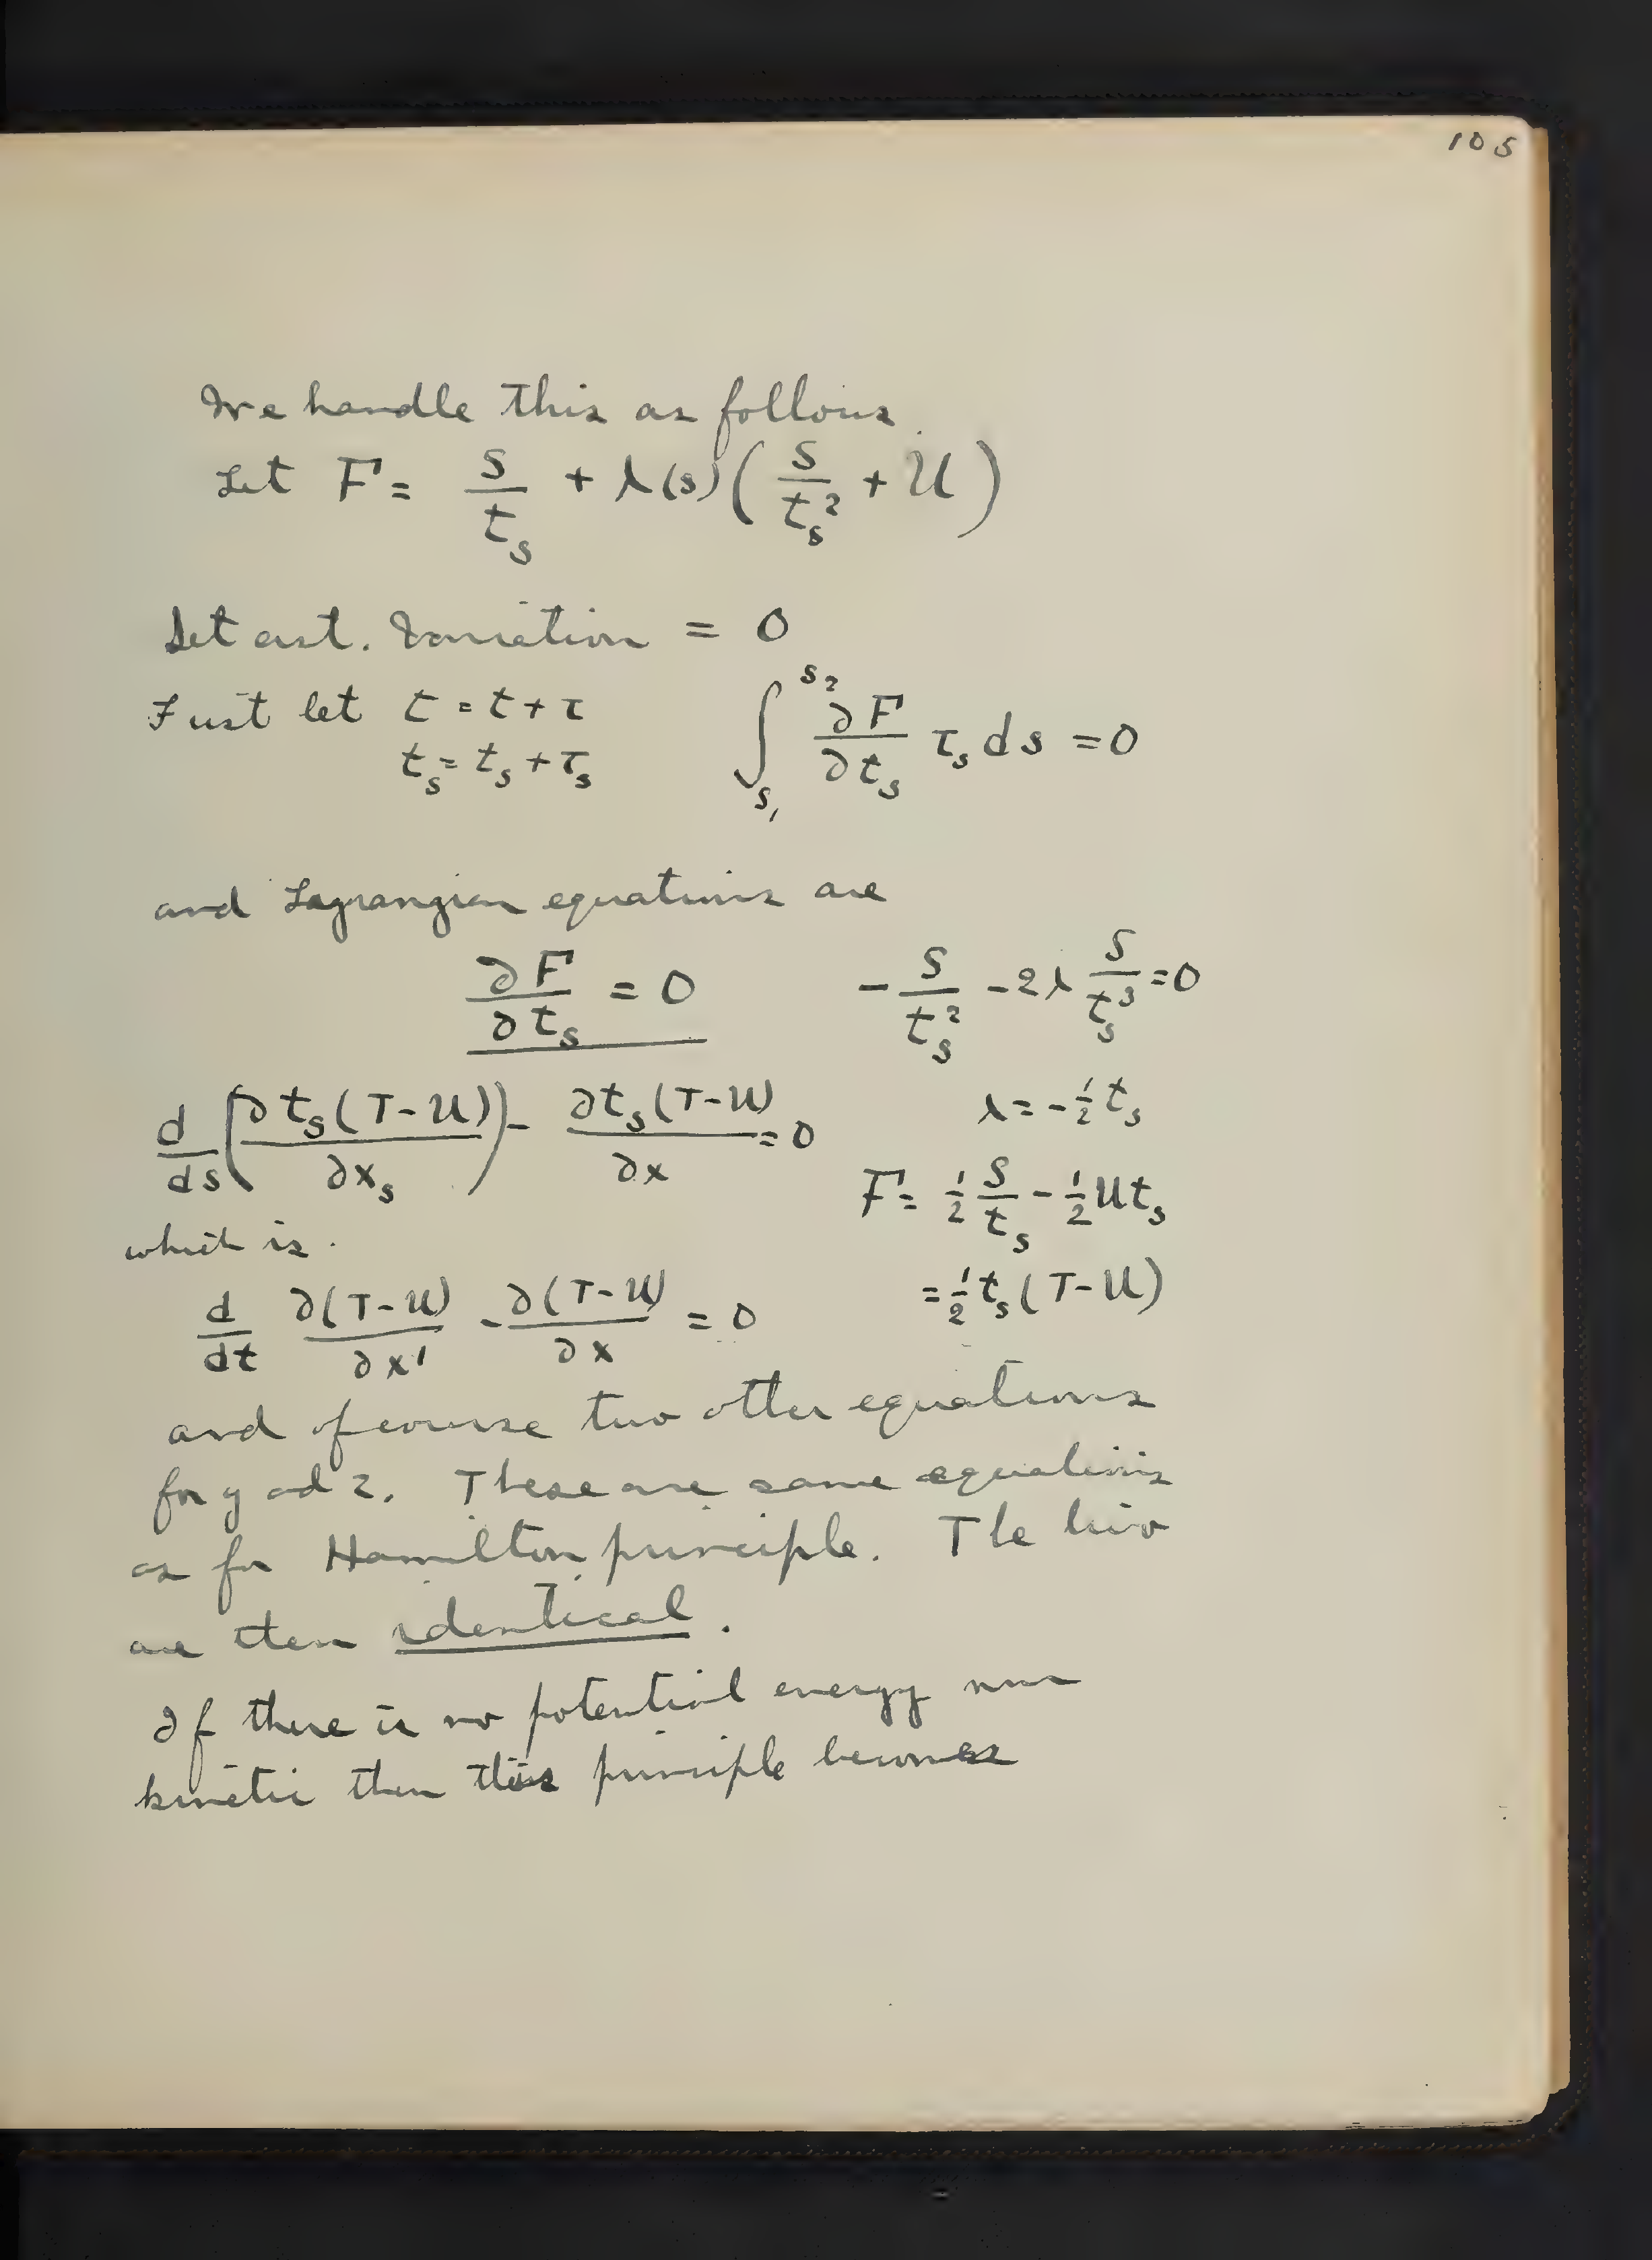 105
We handle this as follows.
Let F = S/t_s + λ(s)(S/t_s² + U)
Let Variation = 0
First let t = t + τ
t_s = t_s + τ_s
∫_{s₁}^{s₂} ∂F/∂t_s τ_s ds = 0
and Lagrangian equations are
∂F/∂t_s = 0
-S/t_s² - 2λ S/t_s³ = 0
λ = -½ t_s
d/ds(∂t_s(T-U)/∂x_s) - ∂t_s(T-U)/∂x = 0
F = ½ S/t_s - ½ U t_s
= ½ t_s (T-U)
which is.
d/dt ∂(T-U)/∂x' - ∂(T-U)/∂x = 0
and of course two other equations
for y and z. These are same equations
as for Hamilton principle. The two
are then identical.
If there is no potential energy
kinetic then this principle becomes